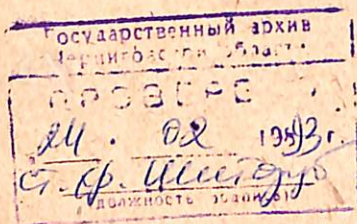 Государственный архив
Черниговской области
ПРОВЕРЕНО
24. 02 1993 г.
ст. хр.
должность подпись